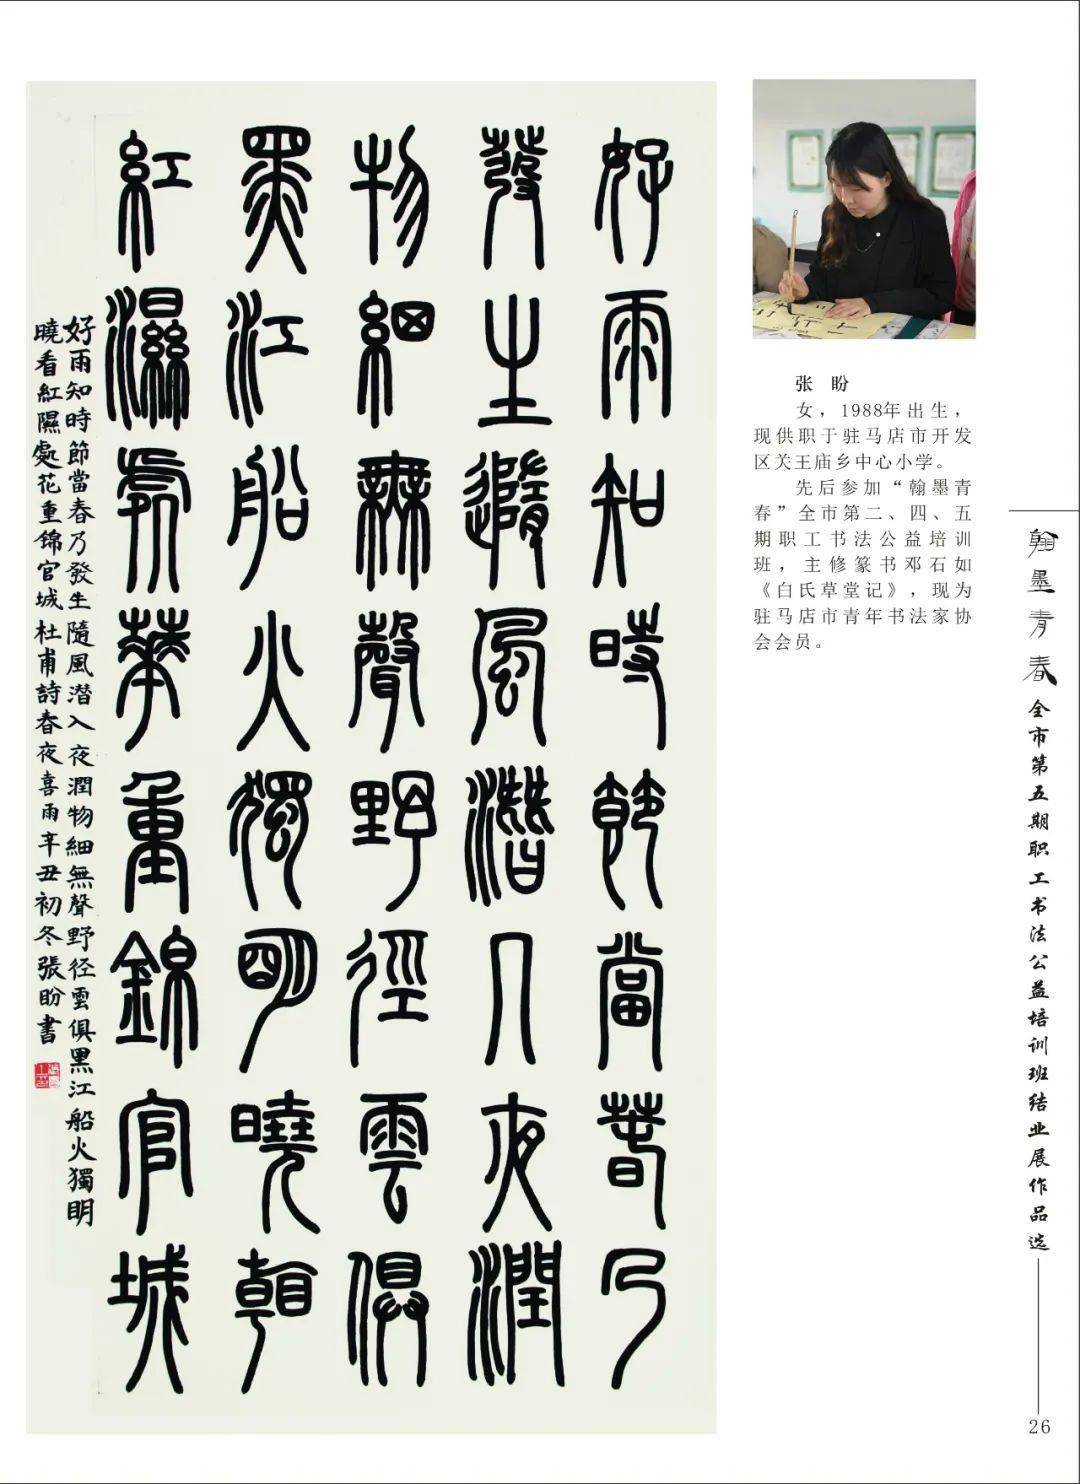 好雨知時節當春乃
發生隨風潛入夜潤
物細無聲野徑雲俱
黑江船火獨明曉看
紅濕處華重錦官城
好雨知時節當春乃發生隨風潜入夜潤物細無聲野径雲俱黑江船火獨明
曉看紅隰處花重錦官城杜甫詩春夜喜雨辛丑初冬張盼書
张 盼
女，1988年出生，
现供职于驻马店市开发
区关王庙乡中心小学。
先后参加“翰墨青
春”全市第二、四、五
期职工书法公益培训
班，主修篆书邓石如
《白氏草堂记》，现为
驻马店市青年书法家协
会会员。
翰墨青春全市第五期职工书法公益培训班结业展作品选
26